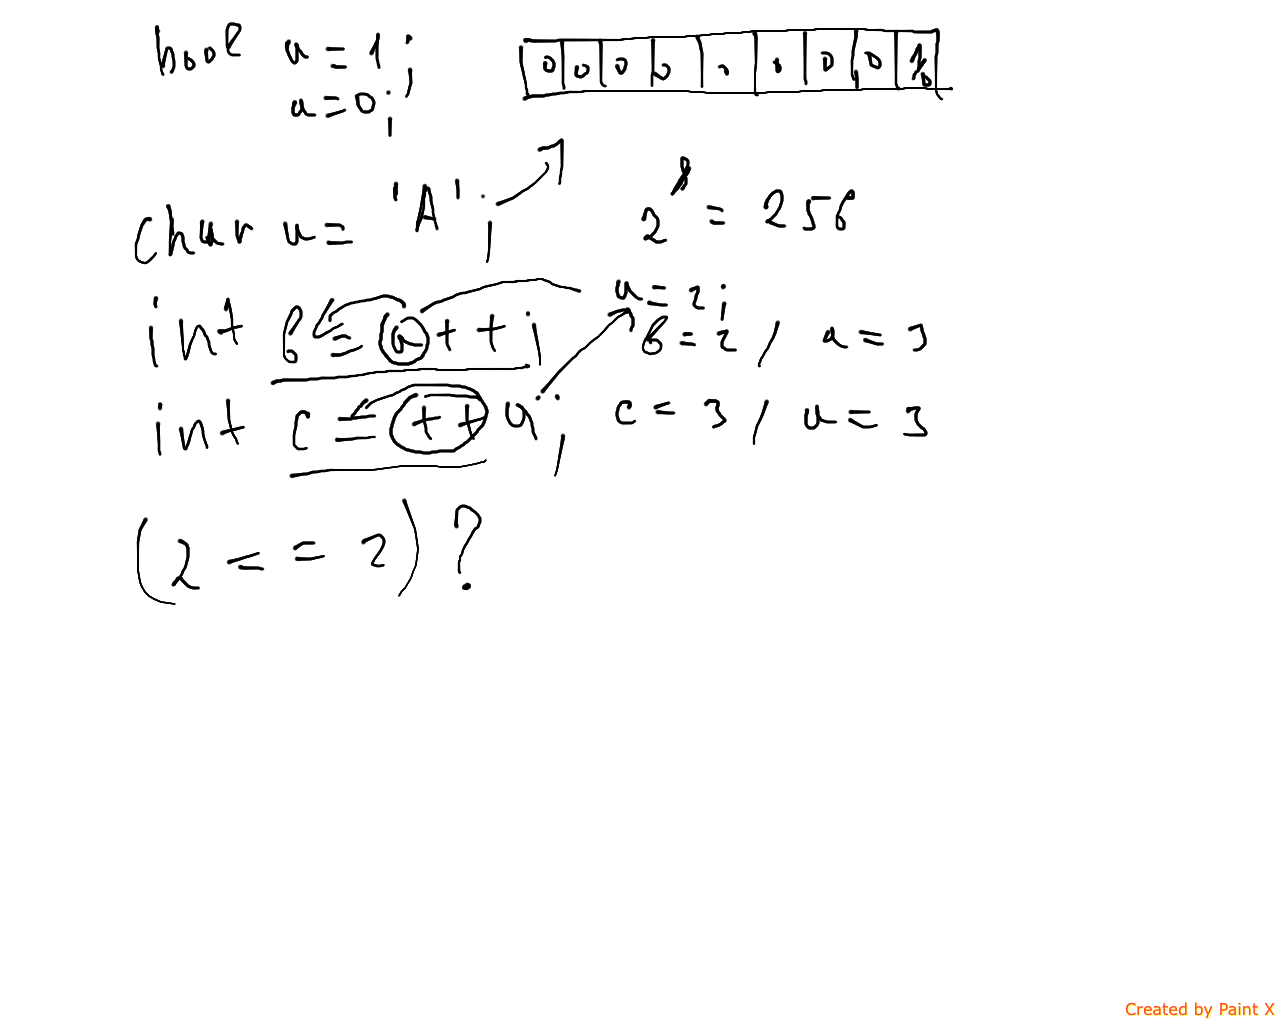 bool a = 1;
a = 0;
0 0 0 0 0 0 0
char a = 'A';
2^8 = 256
int b = a++;
a = 2;
b = 2 / a = 3
int c = ++a;
c = 3 / a = 3
(2 == 2)?
Created by Paint X